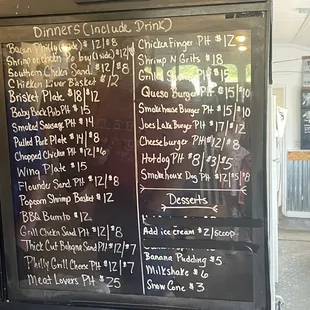 Dinners (Include Drink)
Bacon Philly (side) $12/$8
Shrimp or (side) $12/$8
Southern Chickn Sand $12/$8
Chicken Liver Basket $12
Brisket Plate $18/$12
Baby Back Rib Plt $15
Smoked Sausage Plt $14
Pulled Pork Plate $14/$8
Chopped Chicken Plt $12/$6
Wing Plate $15
Flounder Sand Plt $12/$8
Popcorn Shrimp Basket $12
BBQ Burrito $12
Grill Chicken Sand Plt $12/$8
Thick Cut Bologna Sand Plt $12/$7
Philly Grill Cheese Plt $12/$7
Meat Lovers Plt $25
Chicken Finger Plt $12
Shrimp N Grits $18
Grill Shrimp Plt $15
Queso Burger Plt $15/$10
Smokehouse Burger Plt $15/$10
Joes Lake Burger Plt $17/$12
Cheeseburger Plt $13/$8
Hotdog Plt $8/$3/$5
Smokehouse Dog Plt $12/$5/$8
Desserts
Add ice cream $2/scoop
Banana Pudding $5
Milkshake $6
Snow Cone $3